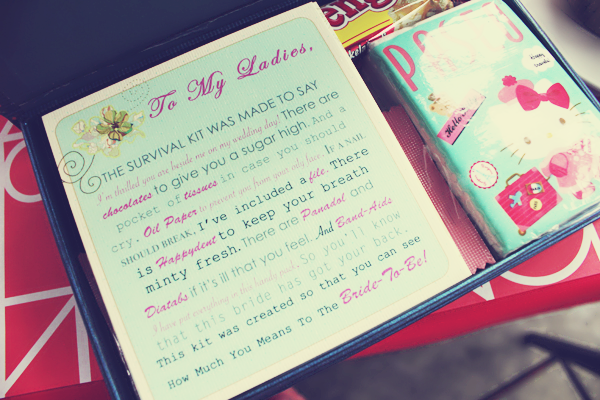 To My Ladies,
THE SURVIVAL KIT WAS MADE TO SAY
I'm thrilled you are beside me on my wedding day! There are
chocolates to give you a sugar high. And a
pocket of tissues in case you should
cry. Oil Paper to prevent you from your oily face. IF A NAIL
SHOULD BREAK, I've included a file. There
is Happydent to keep your breath
minty fresh. There are Panadol and
Diatabs if it's ill that you feel. And Band-Aids
I have put everything in this handy pack. So you'll know
that this bride has got your back.
This kit was created so that you can see
How Much You Means To The Bride-To-Be!
eng
Hello